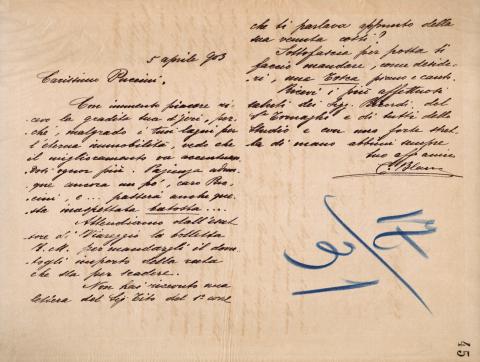 5 aprile 903
Carissimo Puccini,
Con immenso piacere ri-
cevo la gradita sua d'jeri, per-
chè, malgrado i tuoi lagni per
l'eterna immobilità, vedo che
il miglioramento va accentuan-
dosi ognor più. Pazienza adun-
que ancora un po', caro Puc-
cini, e... passerà anche que-
sta inaspettata batosta...
Attendiamo dall'esat-
tore di Viareggio la bolletta
R. M. per mandargli il
importo della rata
che sta per scadere.
Non hai ricevuto una
lettera del Sig Tito del 1º corr
che ti parlava appunto della
sua venuta costì?
Sottofascia per posta ti
faccio mandare, come deside-
ri, una Tosca piano e canto.
Ricevi i più affettuosi
saluti dei Sig. Ricordi, del
e di tutti dello
Studio e con una forte stret-
ta di mano abbimi sempre
tuo aff amico
C. Blanc
17/31
45